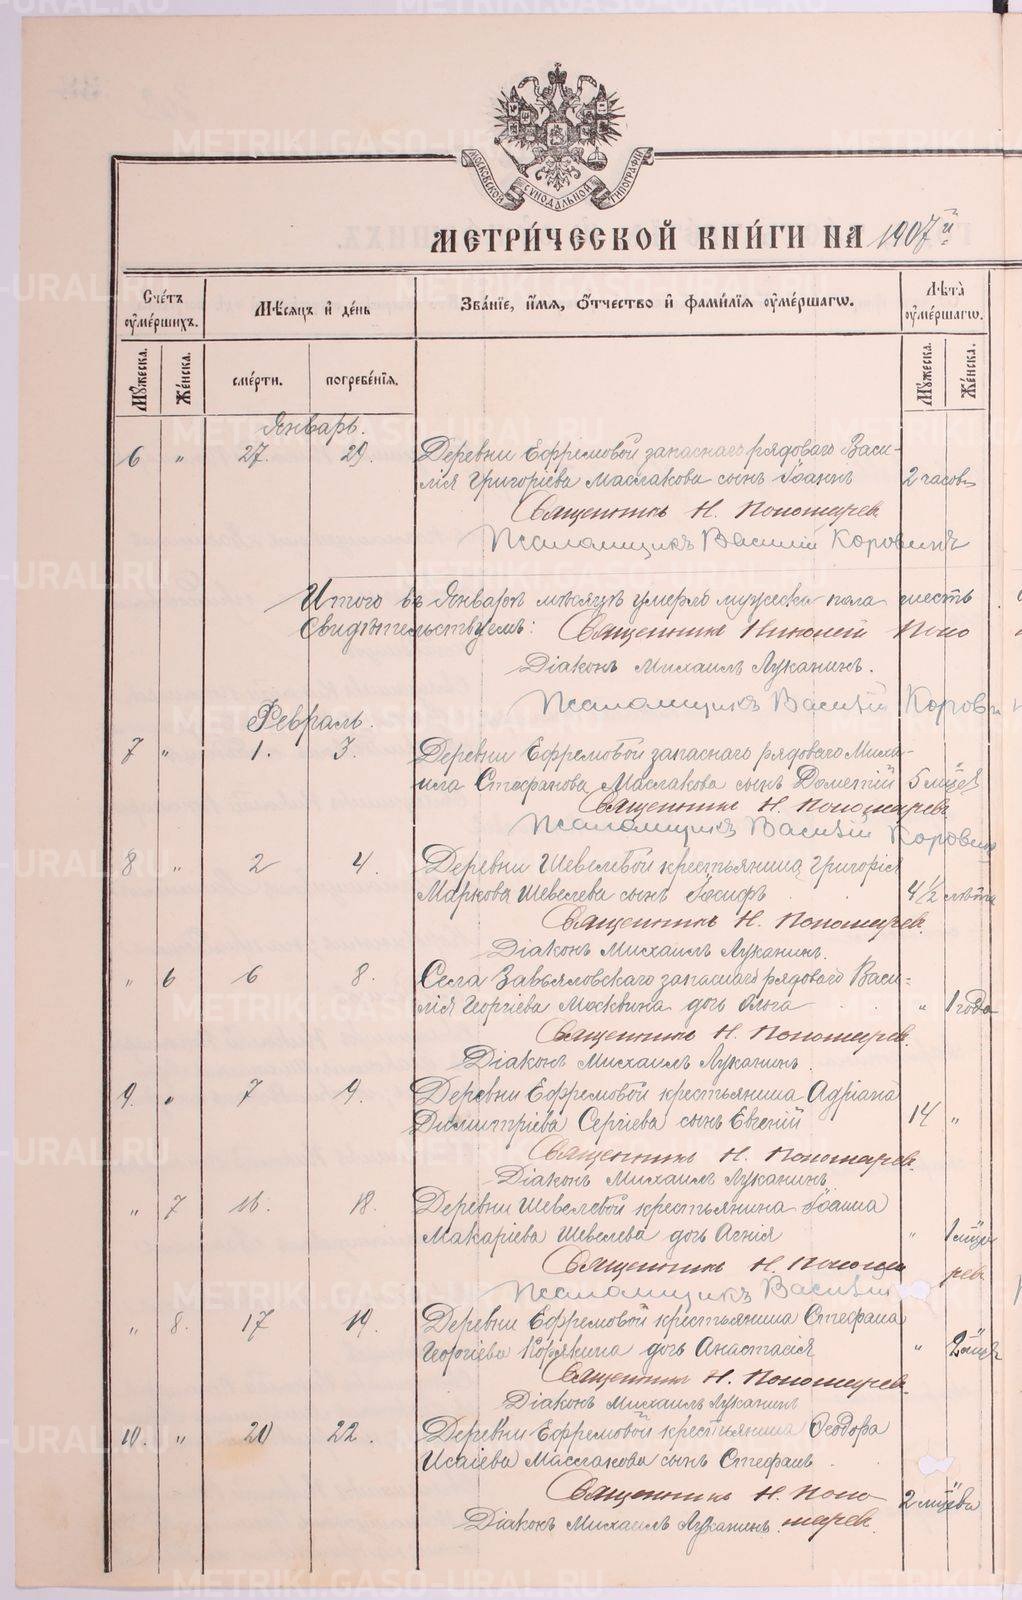 МОСКОВСКОЙ СѴНОДАЛЬНОЙ ТИПОГРАФІИ
МЕТРИ́ЧЕСКОЙ КНИ́ГИ НА 1907й
Сче́тъ оу҆ме́ршихъ.
Мѣ́сяцъ и҆ де́нь
Зва́ніе, и҆́мя, ѻ҆́тчество и҆ фами́лія оу҆ме́ршагѡ.
Лѣ́та оу҆ме́ршагѡ.
Му́жеска. Же́нска. сме́рти. погребе́нія. Му́жеска. Же́нска.
Январь.
6 „ 27. 29. Деревни Ефремовой запаснаго рядоваго Васи-
лія Григоріева Маслакова сынъ Іоаннъ 2 часовъ
Священникъ Н. Пономарев
Псаломщикъ Василій Коровинъ
Итого въ Январѣ мѣсяцѣ умерло мужеска пола шесть
Свидѣтельствуемъ: Священникъ Николай Поно
Діаконъ Михаилъ Луканинъ.
Псаломщикъ Василій Корови
Февраль.
7 „ 1. 3. Деревни Ефремовой запаснаго рядоваго Миха-
ила Стефанова Маслакова сынъ Дометій 5 мцев
Священникъ Н. Пономаревъ
Псаломщикъ Василій Коровинъ
8. „ 2 4. Деревни Шевелевой крестьянина Григорія
Маркова Шевелева сынъ Іосифъ 4 1/2 лѣтъ
Священникъ Н. Пономарев.
Діаконъ Михаилъ Луканинъ.
„ 6 6 8. Села Завьяловскаго запаснаго рядоваго Васи-
лія Георгіева Москвина дочь Ольга „ 1 года
Священникъ Н. Пономарев.
Діаконъ Михаилъ Луканинъ.
9. „ 7 9. Деревни Ефремовой крестьянина Адріана
Димитріева Сергіева сынъ Евгеній 14 „
Священникъ Н. Пономарев.
Діаконъ Михаилъ Луканинъ.
„ 7 16. 18. Деревни Шевелевой крестьянина Іоанна
Макаріева Шевелева дочь Агнія „
Священникъ Н. Поном
Псаломщикъ Василій
„ 8. 17 19. Деревни Ефремовой крестьянина Стефана
Георгіева Корякина дочь Анастасія „
Священникъ Н. Пономарев.
Діаконъ Михаилъ Луканинъ
10. „ 20 22. Деревни Ефремовой крестьянина Ѳеодора
Исаіева Маслакова сынъ Стефанъ.
Священникъ Н. Поно 2 мцева
Діаконъ Михаилъ Луканинъ. марев.
METRIKI.GASO-URAL.RU